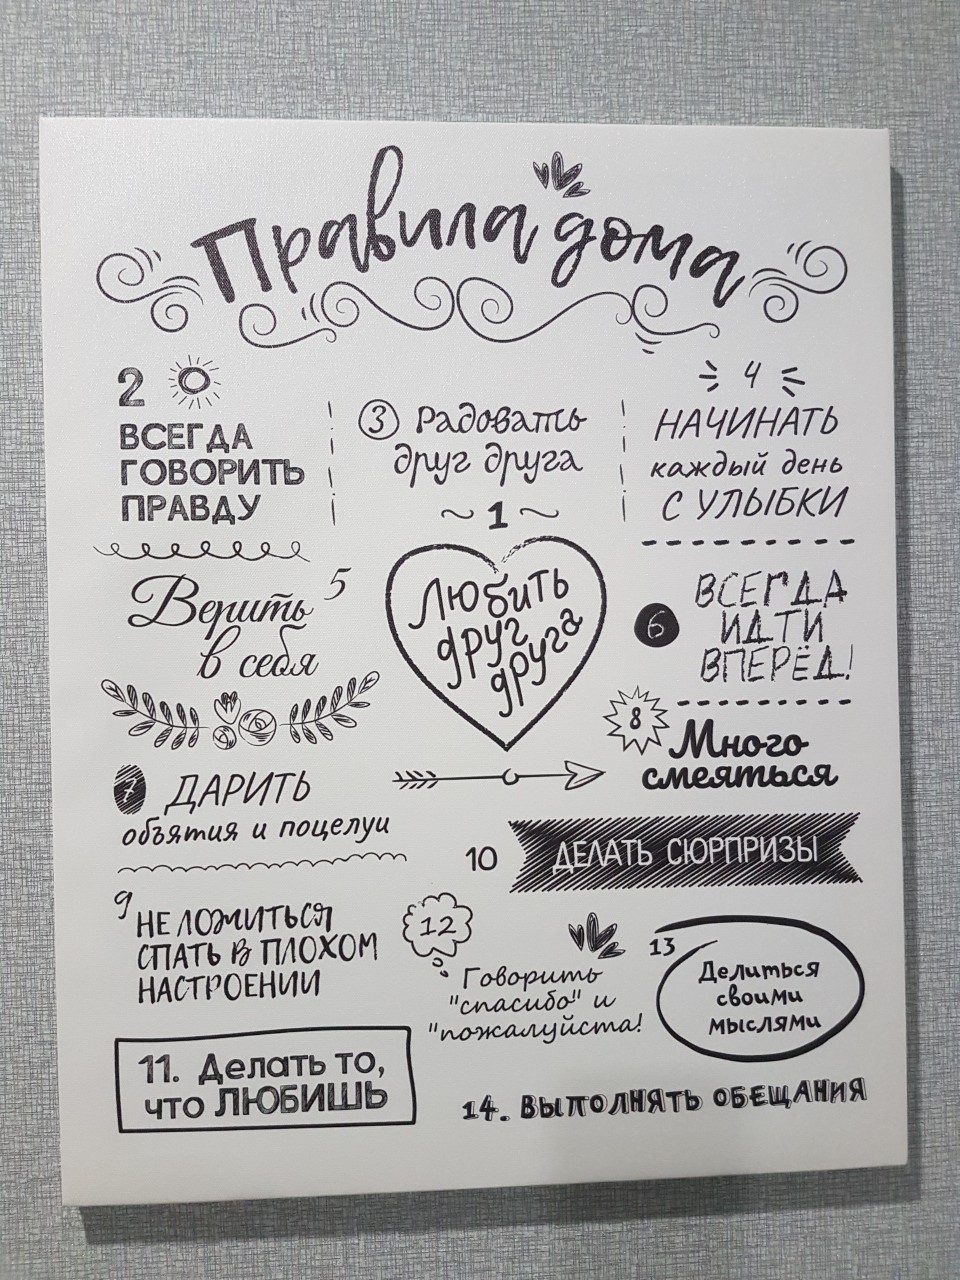 Правила дома
2
ВСЕГДА
ГОВОРИТЬ
ПРАВДУ
3 Радовать
друг друга
4
НАЧИНАТЬ
каждый день
С УЛЫБКИ
~ 1 ~
Любить
друг
друга
5
Верить
в себя
6
ВСЕГДА
ИДТИ
ВПЕРЁД!
7 ДАРИТЬ
объятия и поцелуи
8
Много
смеяться
9
НЕ ЛОЖИТЬСЯ
СПАТЬ В ПЛОХОМ
НАСТРОЕНИИ
10 ДЕЛАТЬ СЮРПРИЗЫ
12
Говорить
"спасибо" и
"пожалуйста!
13
Делиться
своими
мыслями
11. Делать то,
что ЛЮБИШЬ
14. ВЫПОЛНЯТЬ ОБЕЩАНИЯ